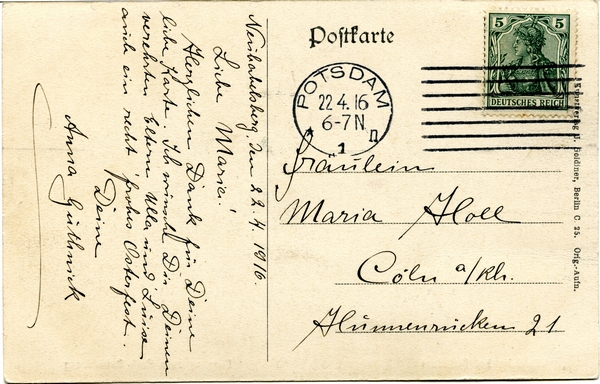 Postkarte
5 5
DEUTSCHES REICH
POTSDAM
22.4.16
6-7N
1 n
Neubabelsberg den 22.4.1916.
Liebe Maria!
Herzlichen Dank für Deine
liebe Karte. Ich wünsche Dir, Deinen
verehrten Eltern Ulla und Luise
auch ein recht frohes Osterfest.
Deine
Anna Güthnick
Fräulein
Maria Holl
Cöln a/Rh.
Hunnenrücken 21
Goldiner, Berlin C. 25. Orig.-Aufn.